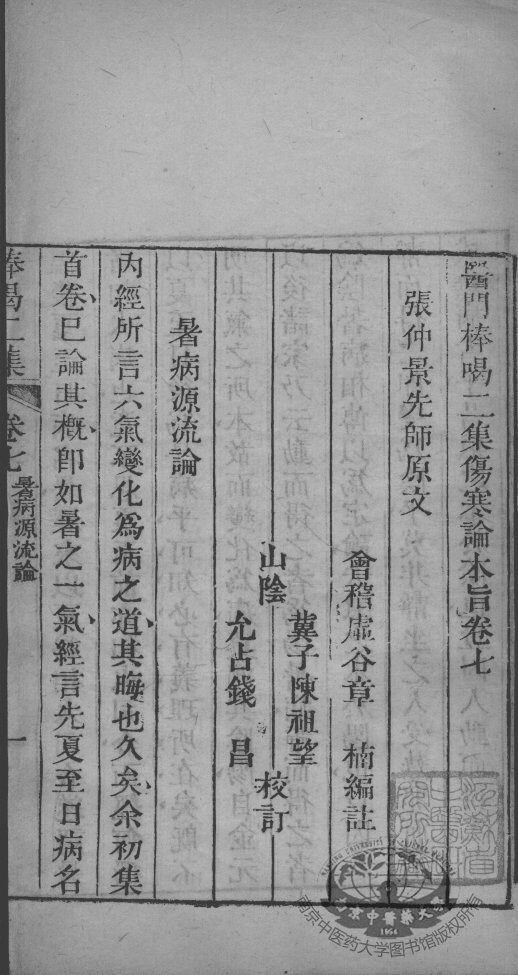 醫門棒喝二集傷寒論本旨卷七
張仲景先師原文
會稽虛谷章 楠編註
山陰
冀子陳祖望
允占錢 昌
校訂
暑病源流論
內經所言六氣變化為病之道其晦也久矣余初集
首卷已論其概卽如暑之一氣經言先夏至日病名
棒喝二集 卷七 暑病源流論 一
南京中醫藥大學
1954
南京中医药大学图书馆版权所有